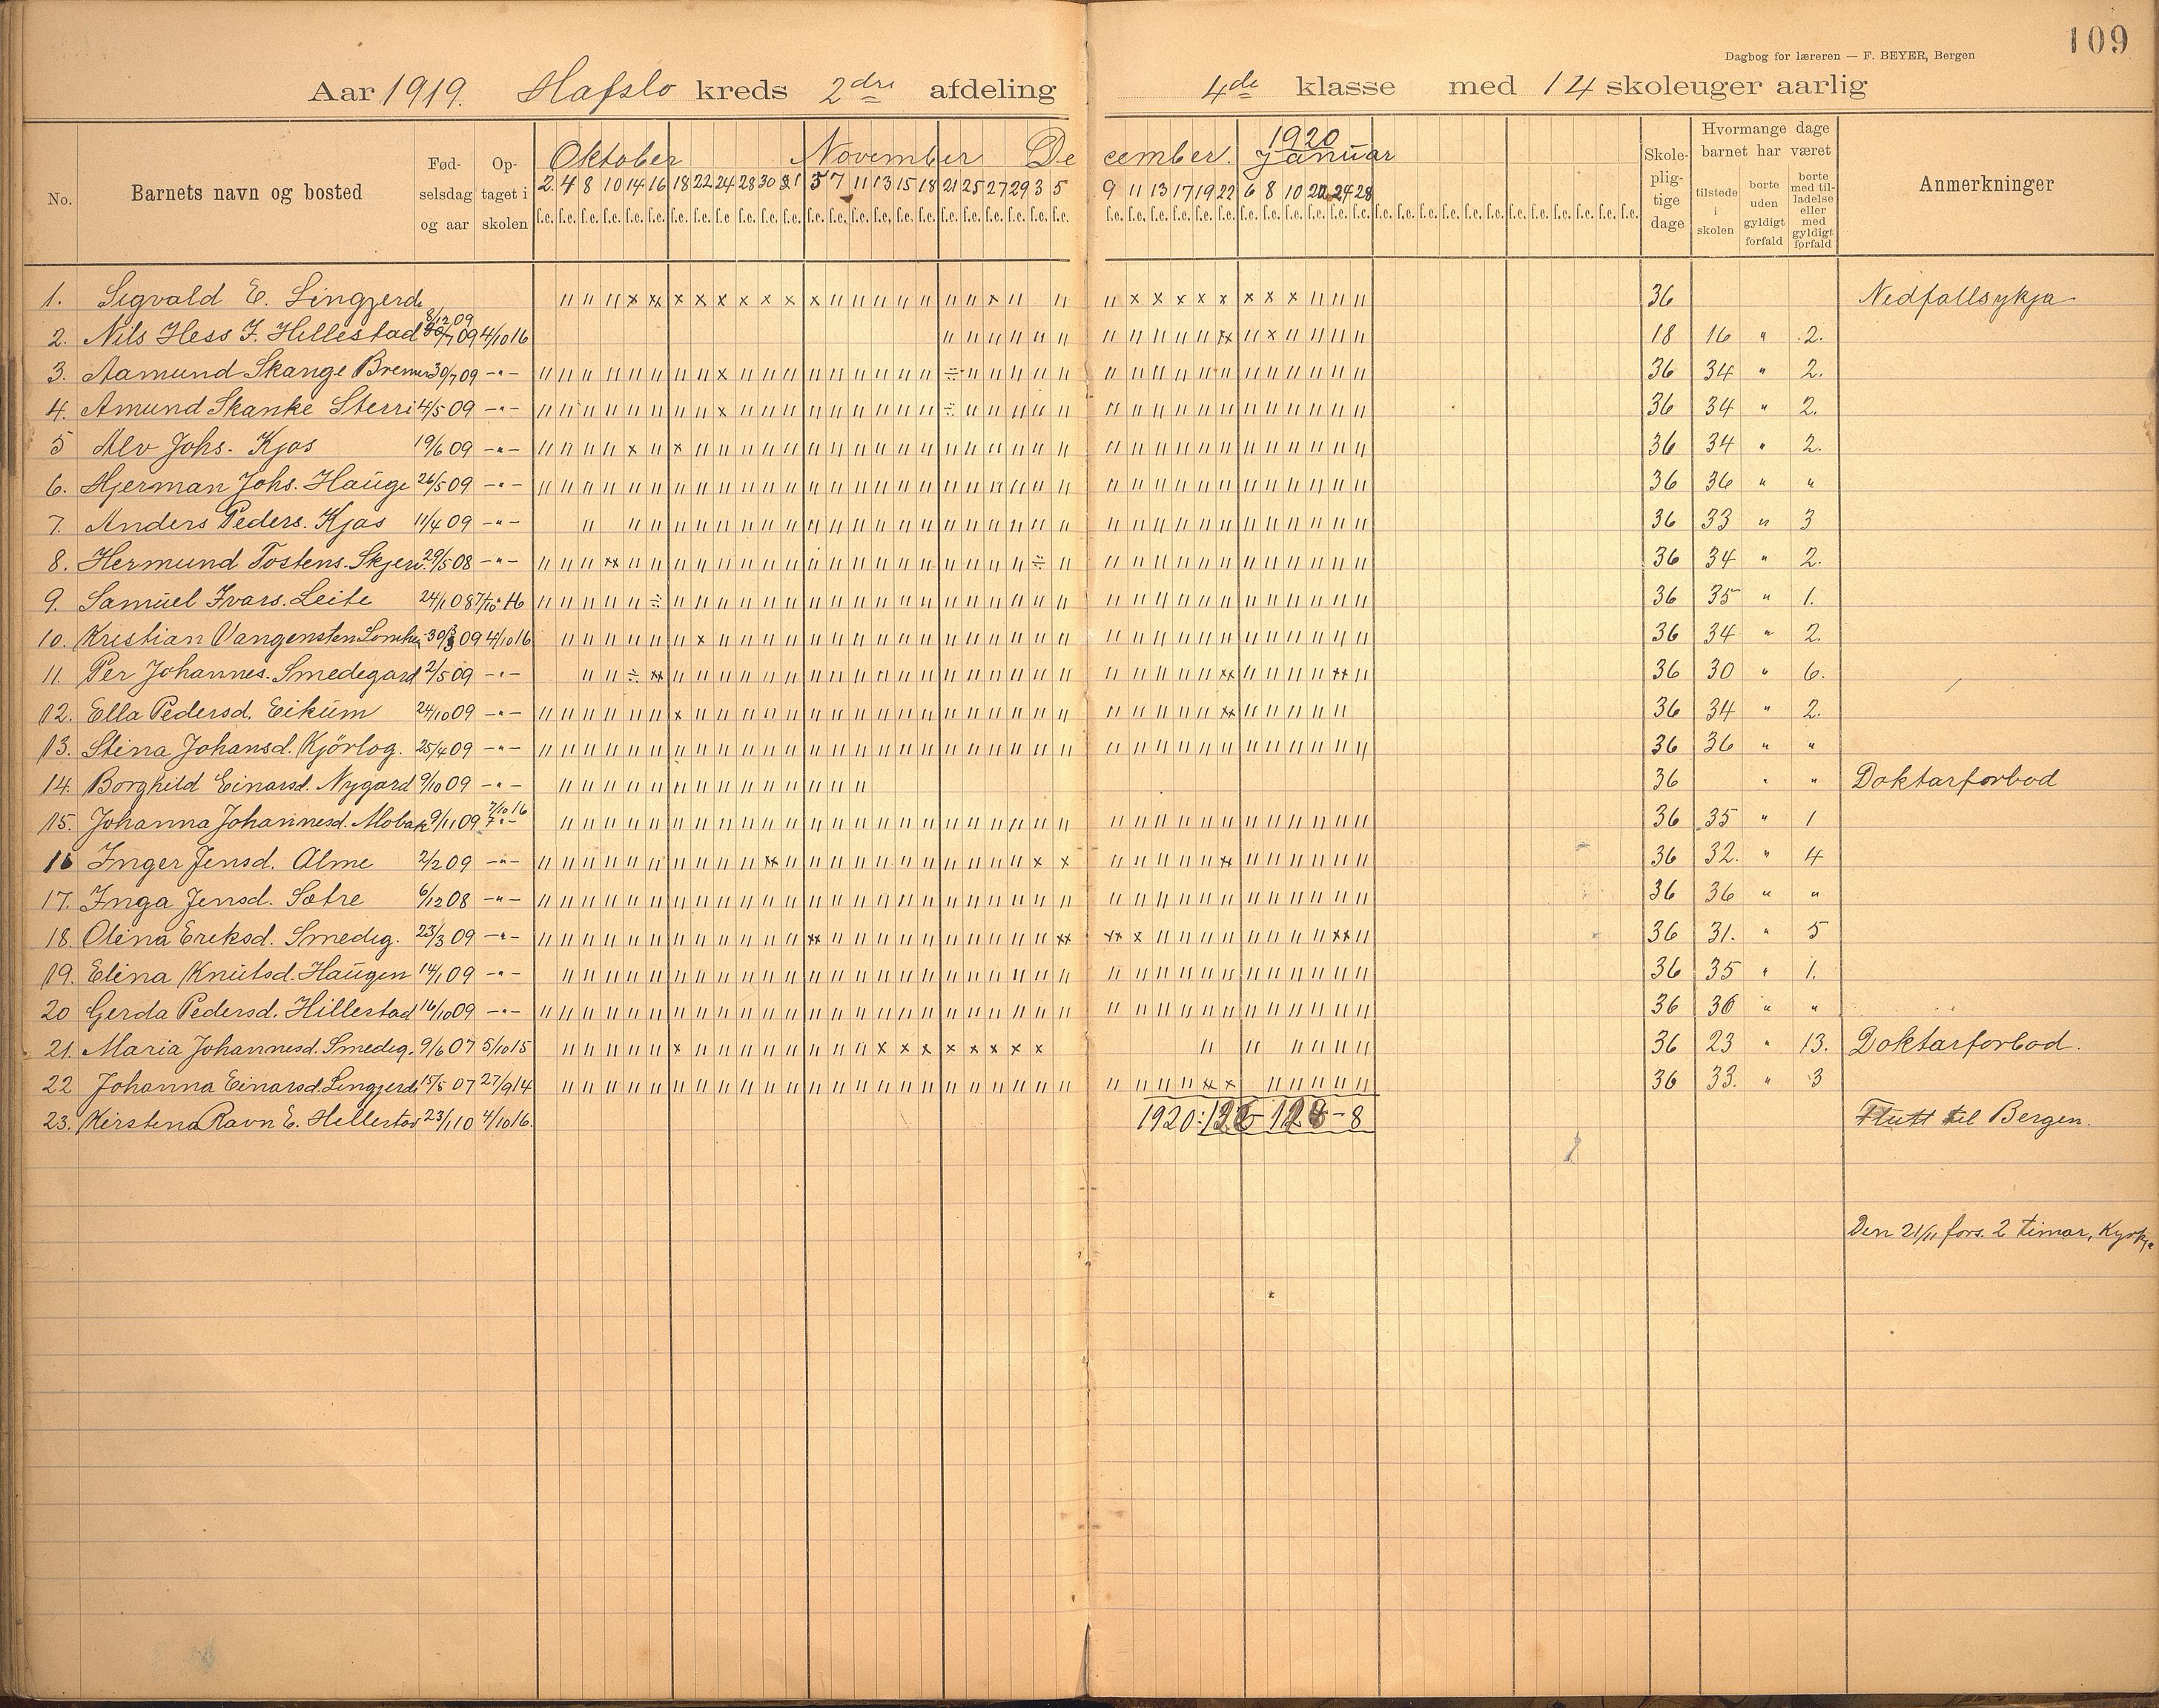 109
Dagbog for læreren — F. BEYER, Bergen
Aar 1919. Hafslo kreds 2dre afdeling 4de klasse med 14 skoleuger aarlig
No. Barnets navn og bosted Fødselsdag og aar Optaget i skolen Oktober November December 1920 Januar Skolepligtige dage Hvormange dage barnet har været Anmerkninger
tilstede i skolen borte uden gyldigt forfald borte med tilladelse eller med gyldigt forfald
2 4 8 10 14 16 18 22 24 28 30 31 5 7 11 13 15 18 21 25 27 29 3 5 9 11 13 17 19 22 6 8 10 22 24 28
f.e. f.e. f.e. f.e. f.e. f.e. f.e. f.e. f.e. f.e. f.e. f.e. f.e. f.e. f.e. f.e. f.e. f.e. f.e. f.e. f.e. f.e. f.e. f.e. f.e. f.e. f.e. f.e. f.e. f.e. f.e. f.e. f.e. f.e. f.e. f.e. f.e. f.e. f.e. f.e. f.e. f.e. f.e. f.e. f.e. f.e. f.e. f.e.
1. Sigvald E. Lingjerde 8/12 09 36 Nedfallsykja
2. Nils Hess J. Hillestad 09 4/10 16 18 16 " 2.
3. Aamund Skange Bremer 30/7 09 -"- 36 34 " 2.
4. Amund Skanke Sterri 4/5 09 -"- 36 34 " 2.
5 Alv Johs. Kjos 19/6 09 -"- 36 34 " 2.
6. Hjerman Johs. Hauge 26/5 09 -"- 36 36 " "
7. Anders Peders. Kjos 11/4 09 -"- 36 33 " 3
8. Hermund Tostens. Skjeri 29/5 08 -"- 36 34 " 2.
9. Samuel Ivars. Leite 24/1 08 7/10 16 36 35 " 1.
10. Kristian Vangensten 09 4/10 16 36 34 " 2.
11. Per Johannes. Smedegard 2/5 09 -"- 36 30 " 6.
12. Ella Pedersd. Eikum 24/10 09 -"- 36 34 " 2.
13. Stina Johansd. Kjörlog. 25/4 09 -"- 36 36 " "
14. Borghild Einarsd. Nygard 9/10 09 -"- 36 " " Doktarforbod
15. Johanna Johannesd. Mobak 9/11 09 7/10 16 36 35 " 1
16 Inger Jensd. Alme 2/2 09 -"- 36 32. " 4
17. Inga Jensd. Sætre 6/12 08 -"- 36 36 " "
18. Olina Eriksd. Smedig. 23/3 09 -"- 36 31. " 5
19. Elina Knutsd. Haugen 14/1 09 -"- 36 35 " 1.
20 Gerda Pedersd. Hillestad 16/10 09 -"- 36 36 " "
21. Maria Johannesd. Smedig. 9/6 07 5/10 15 36 23 " 13. Doktarforbod.
22 Johanna Einarsd. Lingjerde 15/5 07 27/9 14 36 33. " 3
23. Kirstena Ravn E. Hillestad 23/1 10 4/10 16. 1920: Flutt til Bergen.
Den 21/11 fors. 2 timar, Kyrkje